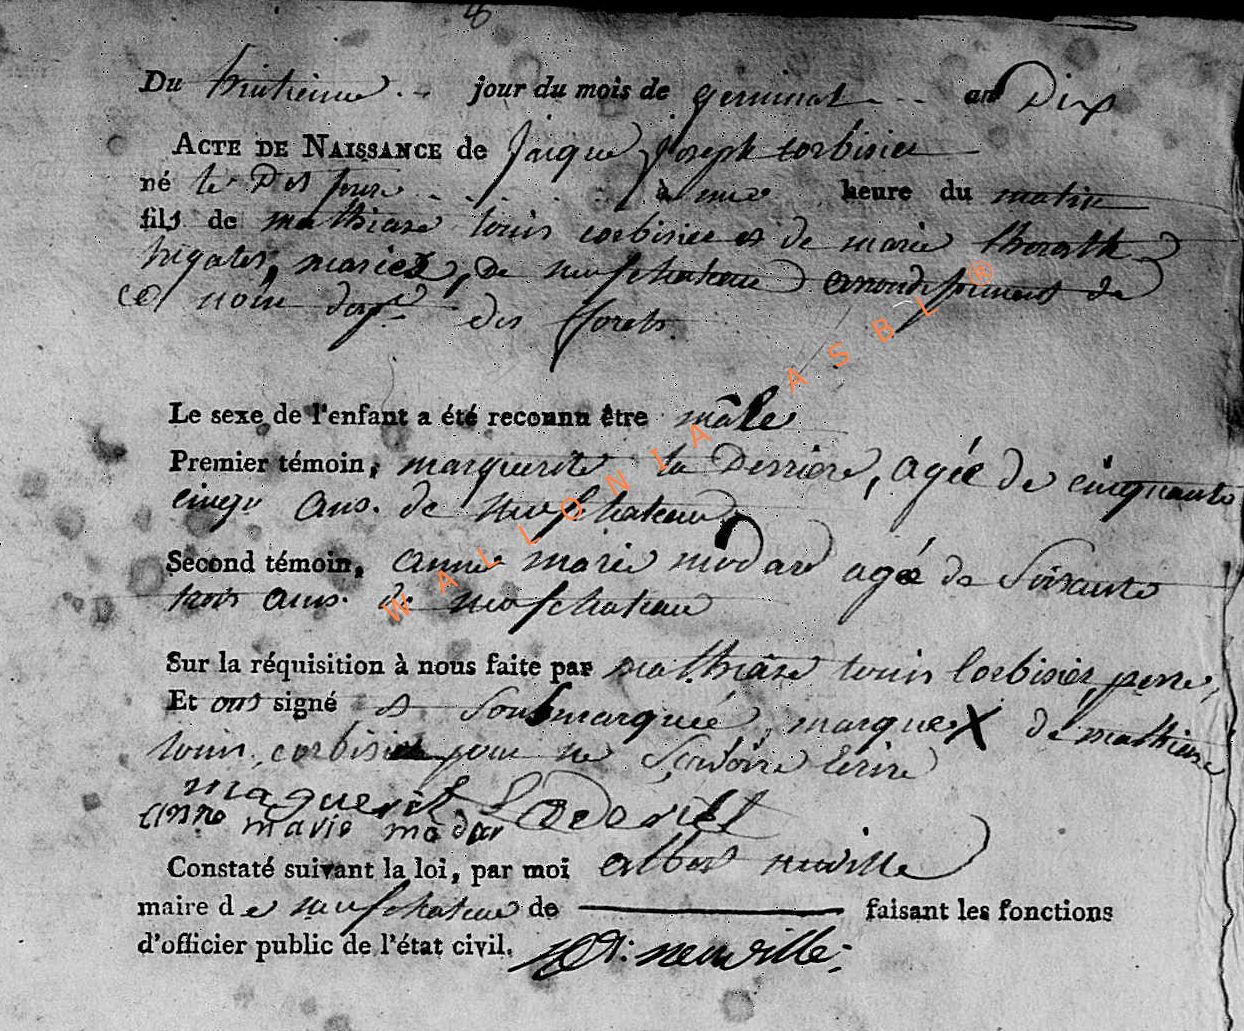 Du huitieme jour du mois de germinal an Dix
ACTE DE NAISSANCE de Jacque Joseph corbisier
né le Dit jour à une heure du matin
fils de mathiase louis corbisier et de marie
mariez, de neufchateau arrondissement de
des forets
Le sexe de l'enfant a été reconnu être mâle
Premier témoin, marguerite la Derriere, agée de cinquante
cinqu ans. de neufchateau
Second témoin, anne marie modard agée de Soixante
trois ans. de neufchateau
Sur la réquisition à nous faite par mathiase louis Corbisier, perre,
Et ont signé et Soubmarquéé, marque X de mathiase
louis, corbisier pour ne Scavoire Ecrire
anne marie modar
Constaté suivant la loi, par moi albert neuville
maire de neufchateau de faisant les fonctions
d'officier public de l'état civil. neuville
WALLONIA ASBL ®